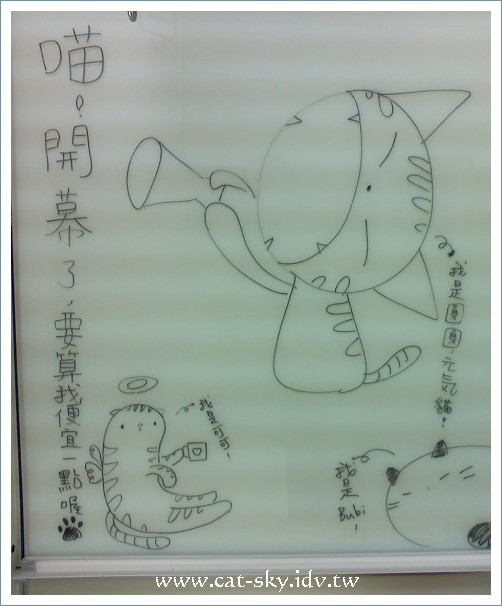 喵!開幕了,要算我便宜一點喔
我是圓圓,元氣貓!
我是
我是Bubi!
www.cat-sky.idv.tw